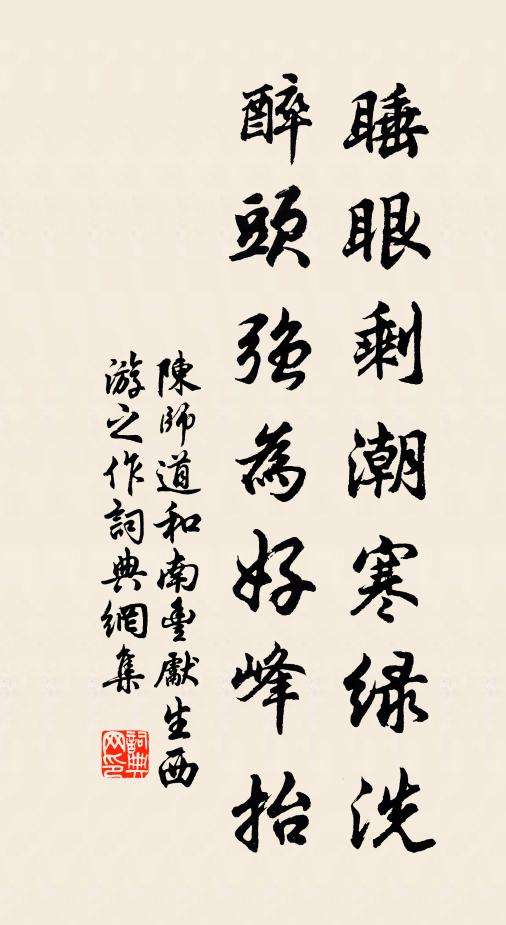 睡眼剩潮寒绿洗
醉頭強為好峰抬
陳師道和南豐厭生西
游之作詞典網集
詞典網印